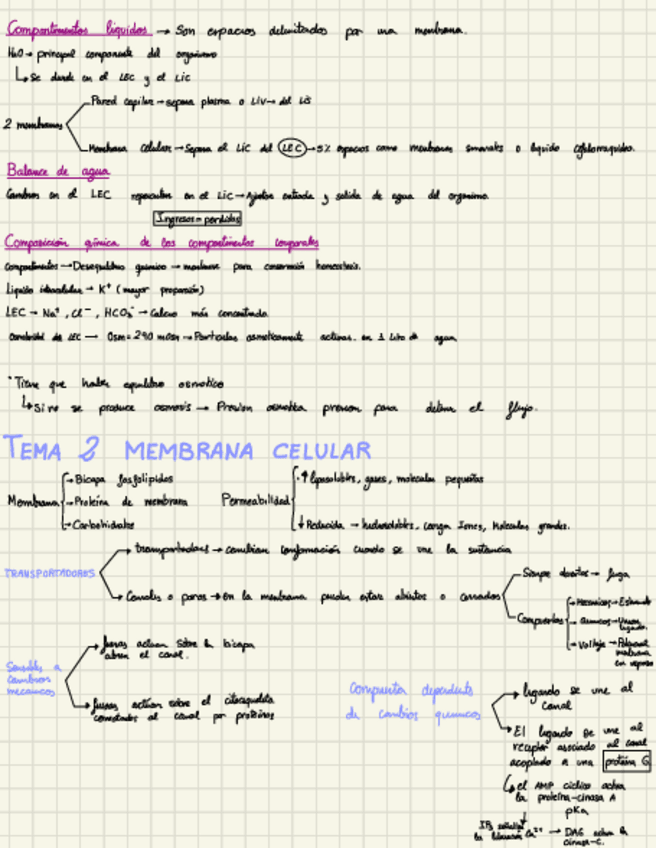 Compartimentos líquidos → Son espacios delimitados por una membrana.
H₂O → principal componente del organismo
↳ Se divide en el LEC y el Lic
2 membranas
Pared capilar → separa plasma o Liv → del Lis
Membrana celular → Separa el Lic del LEC → 5% espacios como membranas sinoviales o líquido cefalorraquídeo.
Balance de agua
Cambios en el LEC repercuten en el Lic → Ajustar entrada y salida de agua del organismo.
Ingresos = perdidas
Composición química de los compartimentos corporales
Compartimentos → Desequilibrio químico → mantiene para conservación homeostasis.
Líquido intracelular → K⁺ (mayor proporción)
LEC → Na⁺, Cl⁻, HCO₃⁻ → Calcio más concentrado.
de LEC → Osm = 290 mOsm → Partículas osmóticamente activas. en 1 Litro de agua
*Tiene que haber equilibrio osmótico
↳ Si no se produce osmosis → Presión osmótica presion para detener el flujo.
TEMA 2 MEMBRANA CELULAR
Membrana
→ Bicapa fosfolípidos
→ Proteína de membrana
→ Carbohidratos
Permeabilidad
↑ liposolubles, gases, moléculas pequeñas
↓ Reducida → hidrosolubles, carga Iones, Moléculas grandes.
TRANSPORTADORES
transportadores → cambian conformación cuando se une la sustancia
Canales o poros → en la membrana pueden estar abiertos o cerrados
Siempre abiertos → fuga
Compuertas
→ Mecánicos →
→ Químicos → Unión ligando.
→ Voltaje → Potencial membrana en reposo
Sensibles a cambios mecánicos
fuerzas actúan sobre la bicapa
abren el canal.
fuerzas actúan sobre el citoesqueleto
conectados al canal por proteínas
Compuerta dependiente
de cambios químicos
ligando se une al
canal
El ligando se une al
receptor asociado al canal
acoplado a una proteína G
↳ el AMP cíclico activa
la proteína-cinasa A
pKa
IP3
la liberación Ca²⁺ → DAG activa la
cinasa-C.